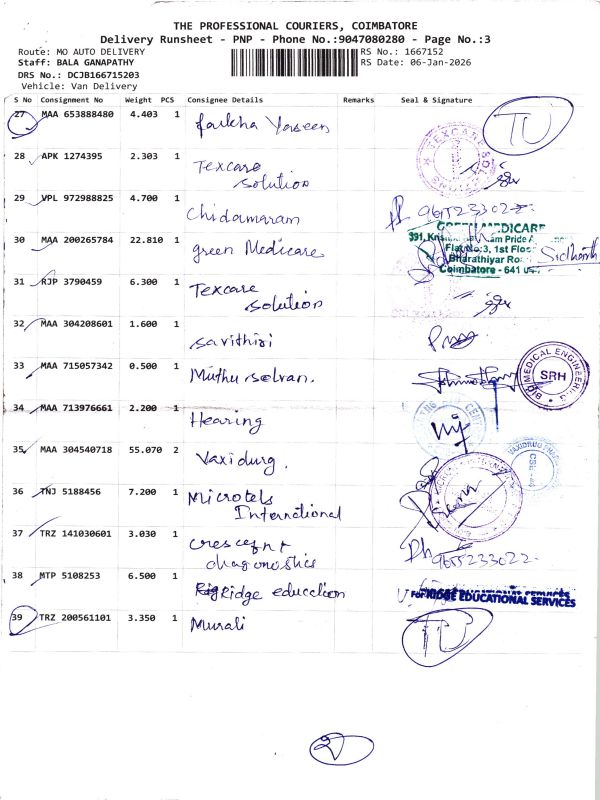 THE PROFESSIONAL COURIERS, COIMBATORE
Delivery Runsheet - PNP - Phone No.:9047080280 - Page No.:3
Route: MO AUTO DELIVERY
RS No.: 1667152
Staff: BALA GANAPATHY
RS Date: 06-Jan-2026
DRS No.: DCJB166715203
Vehicle: Van Delivery
S No Consignment No Weight PCS Consignee Details Remarks Seal & Signature
27 MAA 653888480 4.403 1 Yaseen TU
28 APK 1274395 2.303 1 Texcare
solution
TEXCARE SOLUTIONS
29 VPL 972988825 4.700 1 Chidamaram Ph 9655233022
30 MAA 200265784 22.810 1 green Medicare
GREEN MEDICARE
Flat No:3, 1st Floor
Bharathiyar Road
Coimbatore - 641
Sidharth
31 RJP 3790459 6.300 1 Texcare
solution
32 MAA 304208601 1.600 1 savithiri
33 MAA 715057342 0.500 1 Muthu selvan.
BIO MEDICAL ENGINEERING
SRH
34 MAA 713976661 2.200 1 Hearing
35 MAA 304540718 55.070 2 Vaxidurg.
36 TNJ 5188456 7.200 1 Microtels
International
37 TRZ 141030601 3.030 1 crescent
diagonostics
Ph 9655233022
38 MTP 5108253 6.500 1 Ridge education
For RIDGE EDUCATIONAL SERVICES
39 TRZ 200561101 3.350 1 Murali TU
2